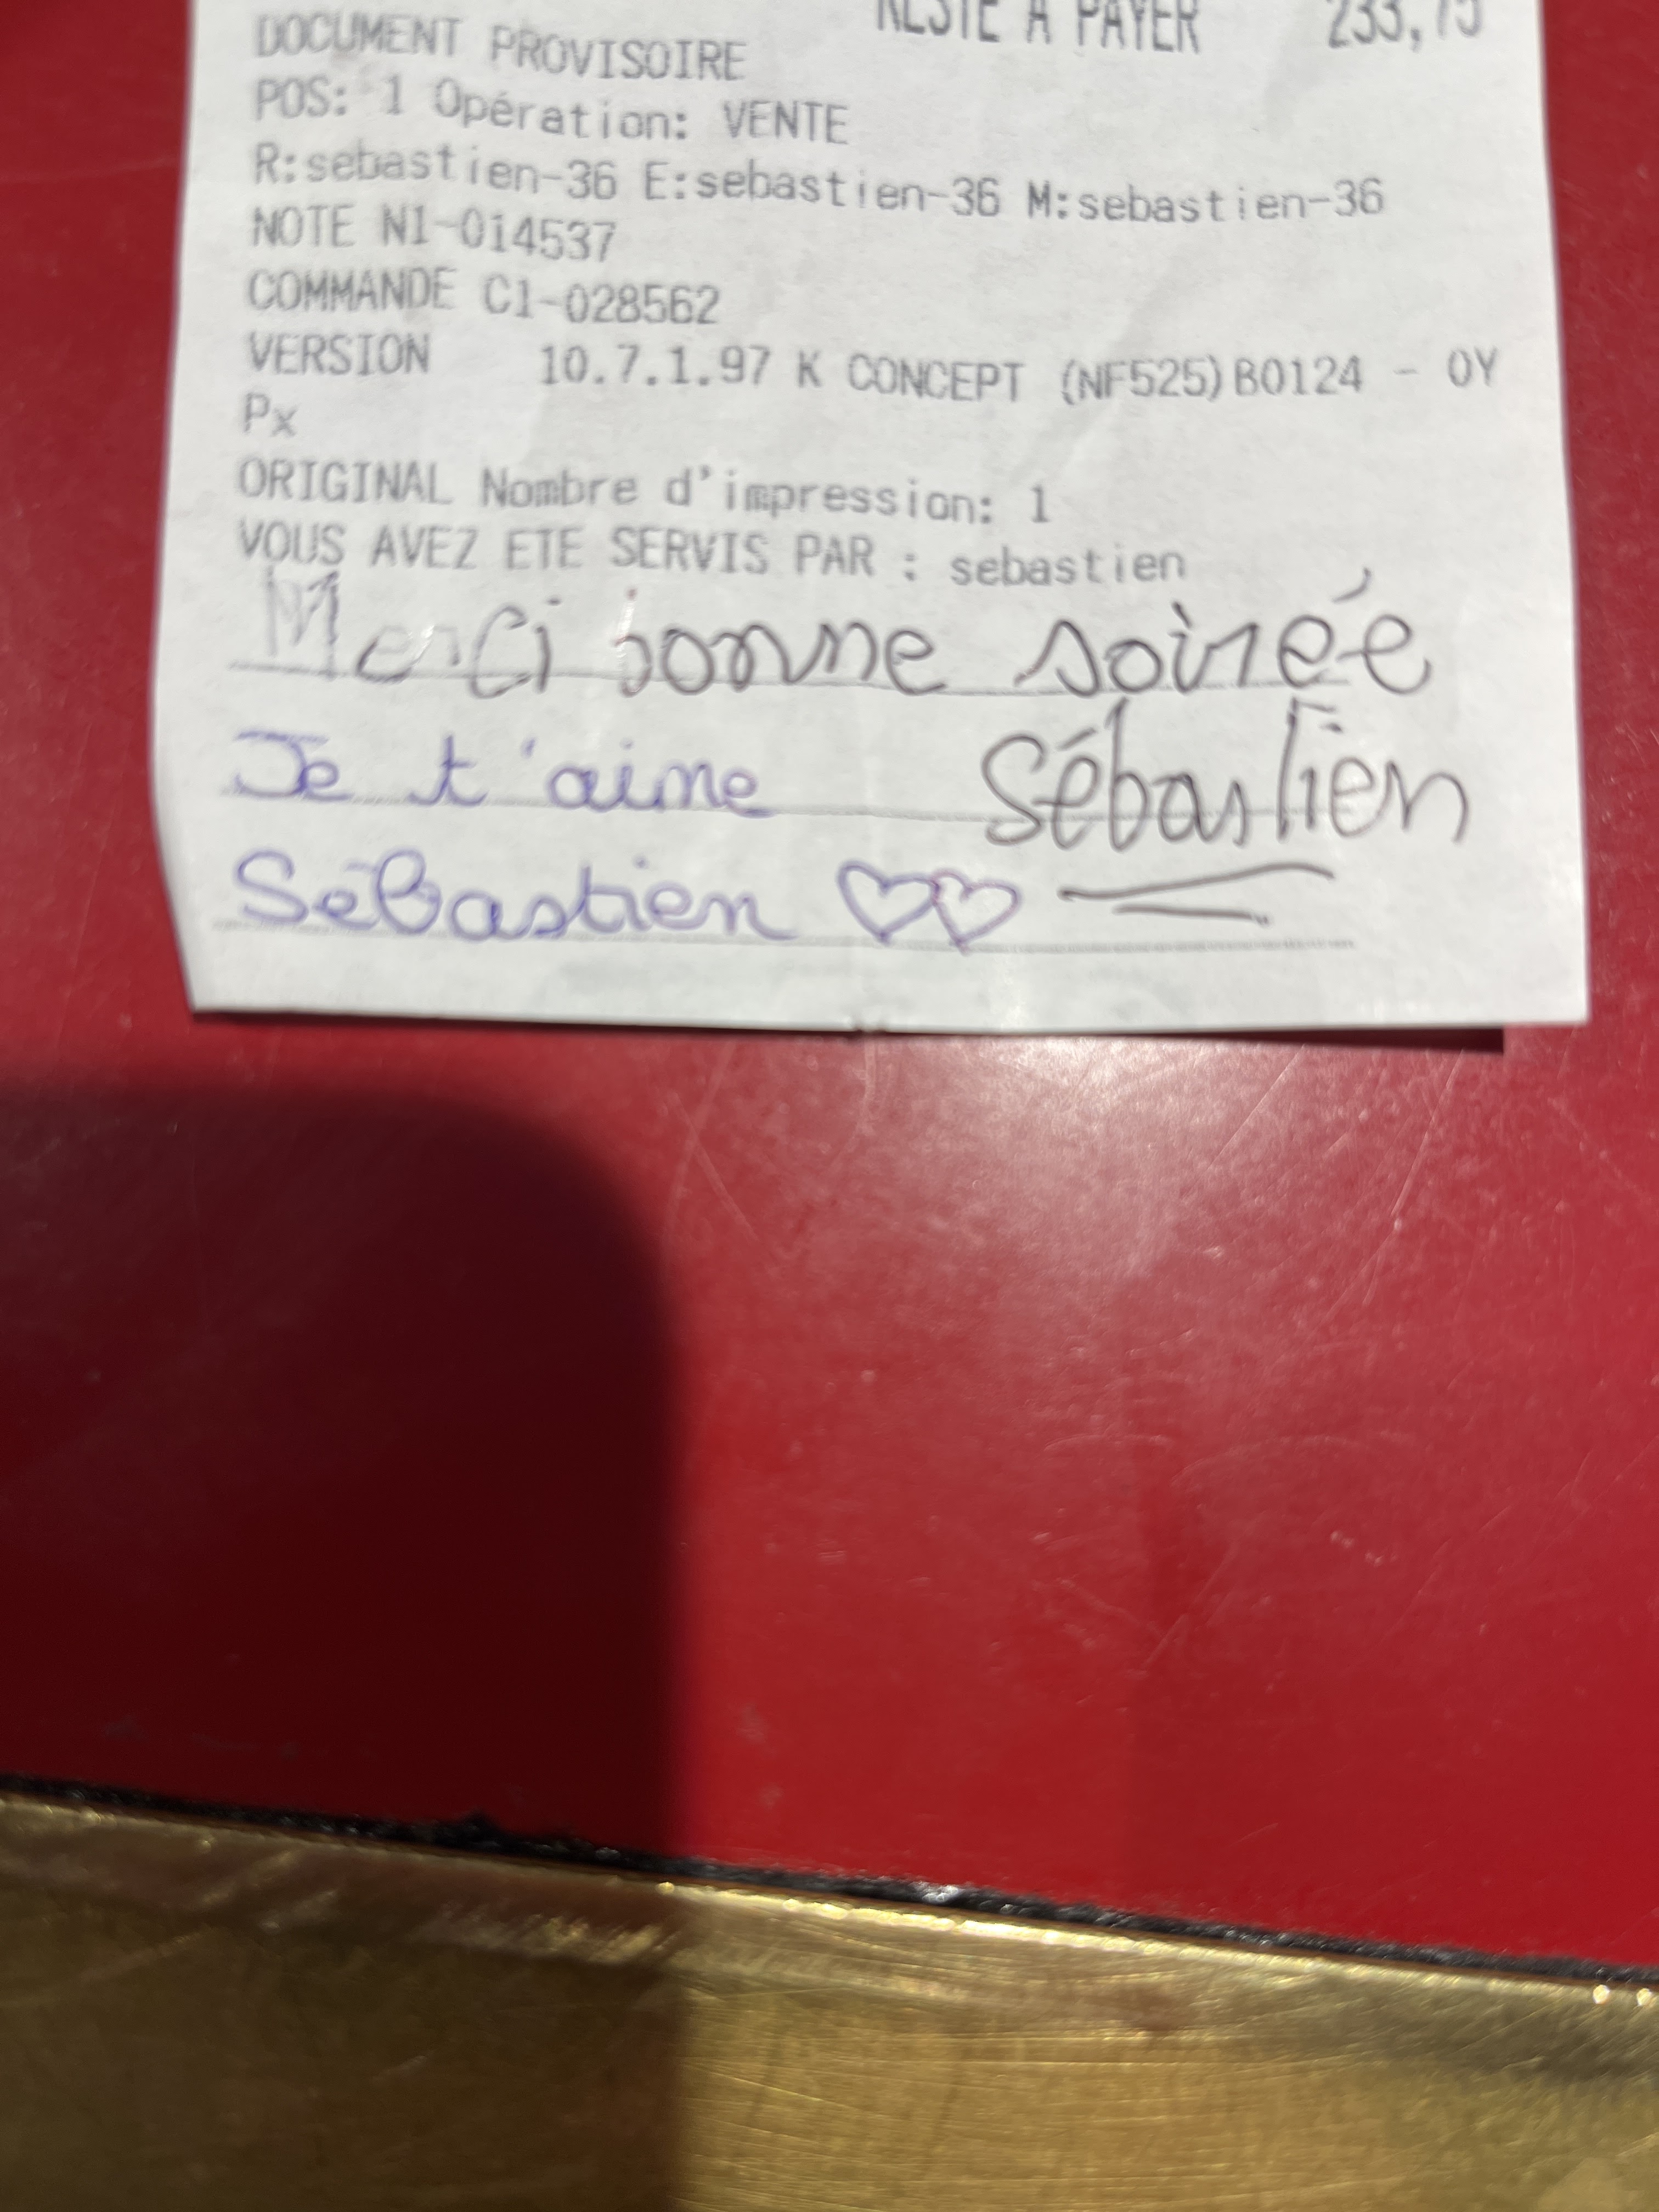 RESTE A PAYER 233,75
DOCUMENT PROVISOIRE
POS: 1 Opération: VENTE
R:sebastien-36 E:sebastien-36 M:sebastien-36
NOTE N1-014537
COMMANDE C1-028562
VERSION 10.7.1.97 K CONCEPT (NF525)B0124 - OY
Px
ORIGINAL Nombre d'impression: 1
VOUS AVEZ ETE SERVIS PAR : sebastien
Merci bonne soirée
Sébastien
Je t'aime
Sébastien ♡♡